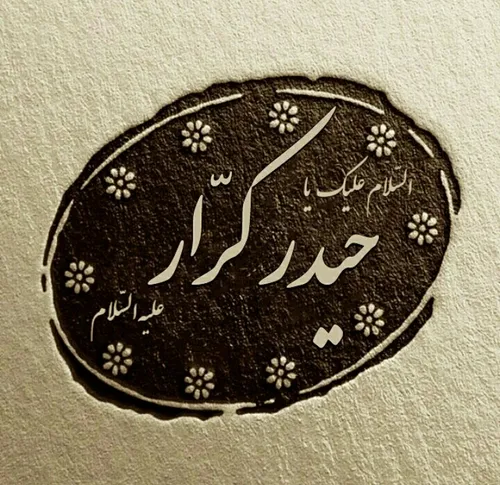 السّلام علیک یا
حیدر کرّار
علیه السّلام